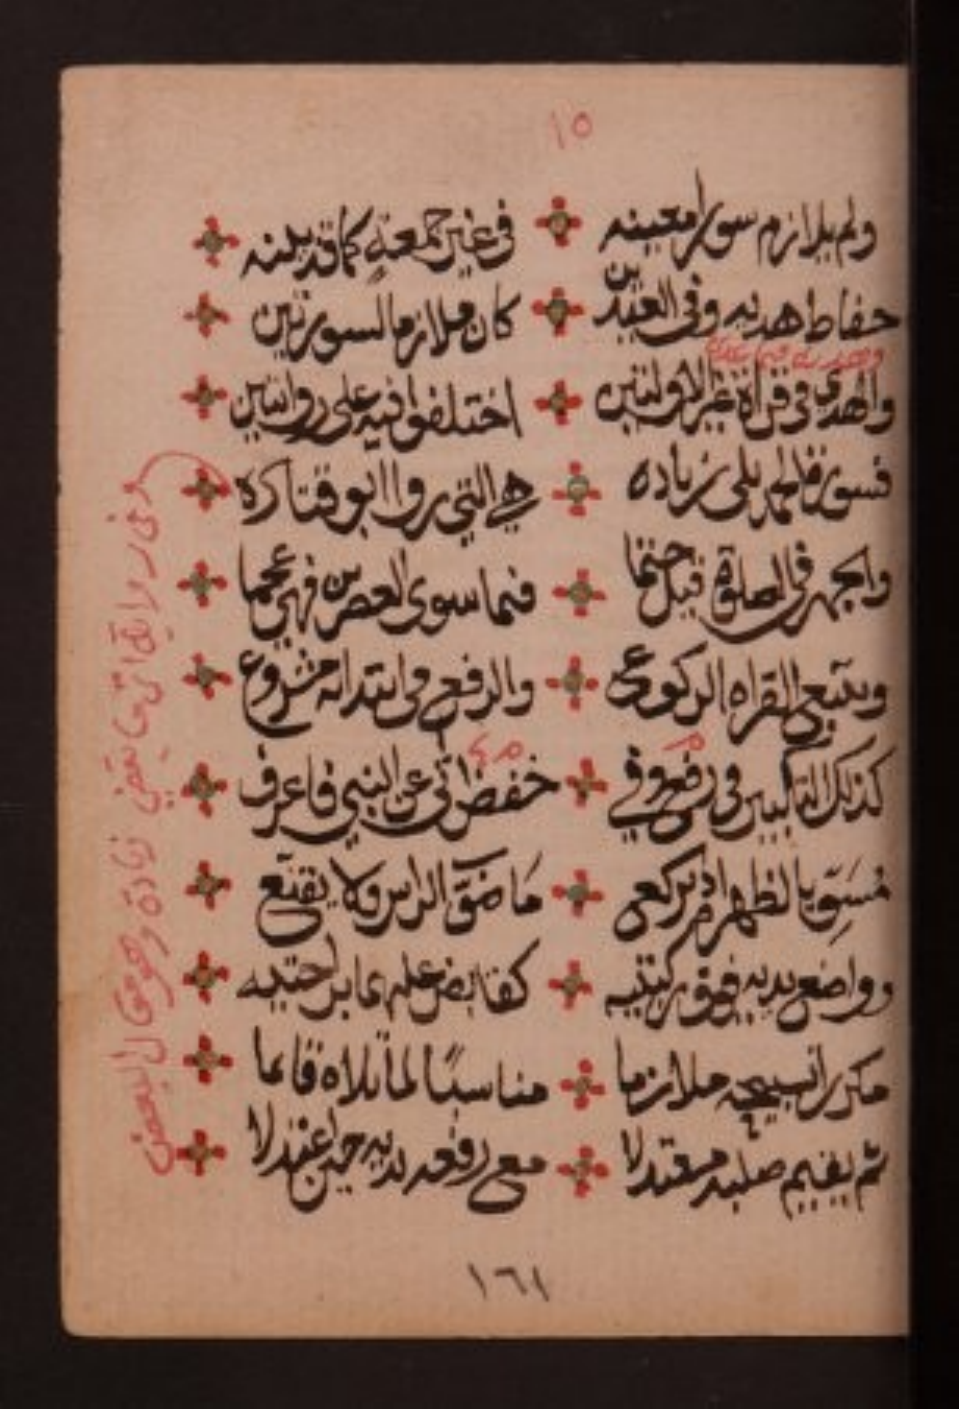 ١٥
ولم يلازم سورا معينه في غير جمعة كما قد بينه
حفاظ هديه وفي العيدين كان ملازما لسورتين
والهدي في قراة غير الاولتين اختلفوا فيه على روايتين
فسورة الحمد بلى زياده هي التي رواا ابو قتادة
واجهر في الصلوة قبل ختما فما سوى العصرين فهي عجما
ويتبع القراه الركوع والرفع في ابتدائه مشروع
كذلك التكبير في رفع وفي خفض اتى عن النبي فاعرف
مسوّيا لظهره اذ يركع ما ضمّ الراس ولا يقنّع
وواضع يديه فوق ركبتيه كقابض عليهما براحتيه
مكررا تسبيحه ملازما مناسبًا لما تلاه قائما
ثم يقيم صلبه معتدلا مع رفعه يديه حين اعتدلا
وفي رواية اتى ما يقتضي زيادة وهو محال البعض
١٦١